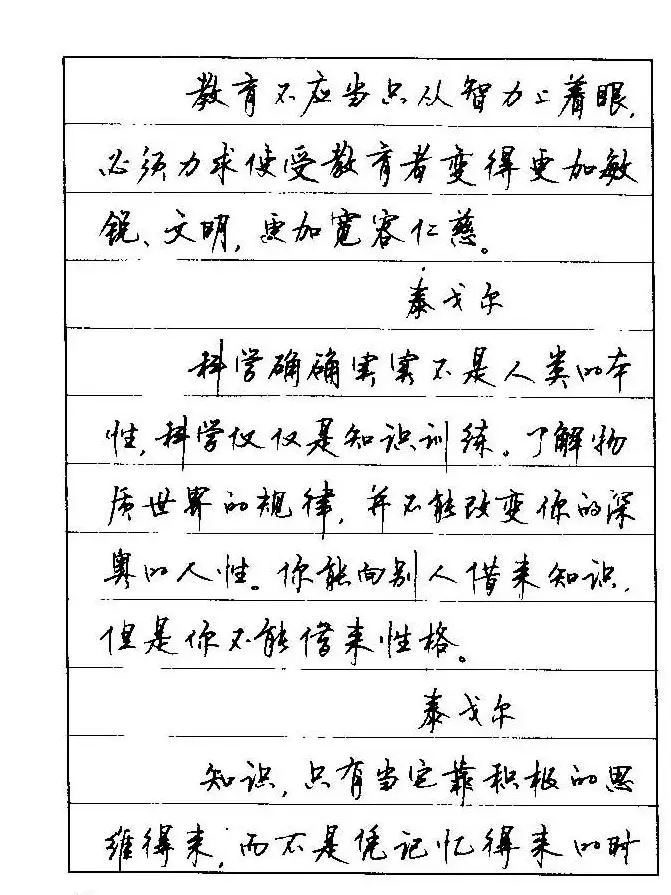 教育不应当只从智力上着眼，
必须力求使受教育者变得更加敏
锐、文明，更加宽容仁慈。
泰戈尔
科学确确实实不是人类的本
性，科学仅仅是知识训练。了解物
质世界的规律，并不能改变你的深
奥的人性。你能向别人借来知识，
但是你不能借来性格。
泰戈尔
知识，只有当它靠积极的思
维得来，而不是凭记忆得来的时